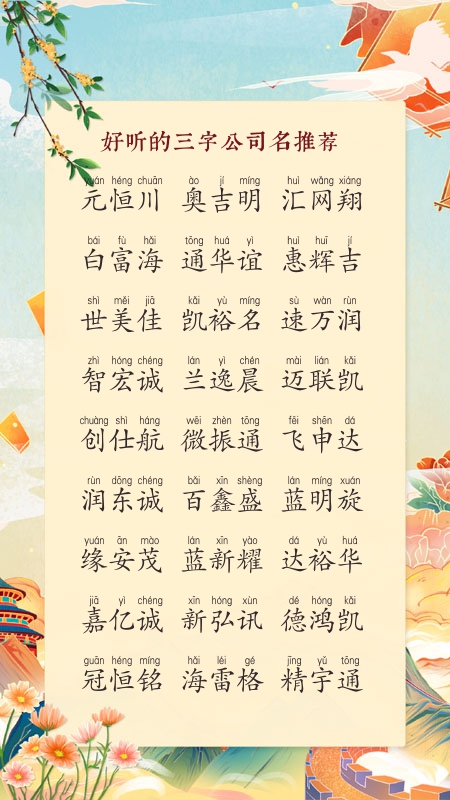 好听的三字公司名推荐
yuán héng chuān ào jí míng huì wǎng xiáng
元恒川 奥吉明 汇网翔
bái fù hǎi tōng huá yì huì huī jí
白富海 通华谊 惠辉吉
shì měi jiā kǎi yù míng sù wàn rùn
世美佳 凯裕名 速万润
zhì hóng chéng lán yì chén mài lián kǎi
智宏诚 兰逸晨 迈联凯
chuàng shì háng wēi zhèn tōng fēi shēn dá
创仕航 微振通 飞申达
rùn dōng chéng bǎi xīn shèng lán míng xuán
润东诚 百鑫盛 蓝明旋
yuán ān mào lán xīn yào dá yù huá
缘安茂 蓝新耀 达裕华
jiā yì chéng xīn hóng xùn dé hóng kǎi
嘉亿诚 新弘讯 德鸿凯
guān héng míng hǎi léi gé jīng yǔ tōng
冠恒铭 海雷格 精宇通